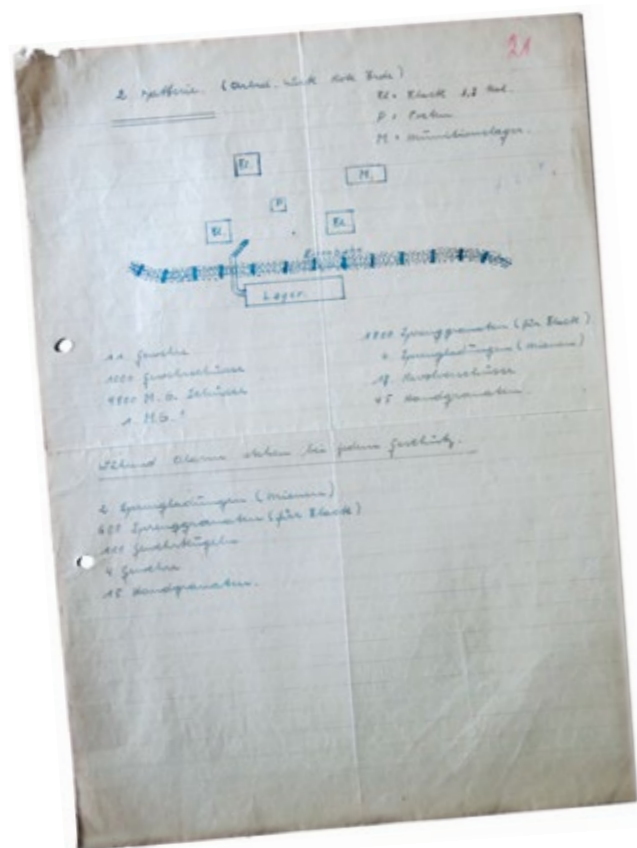 21
2. Batterie. (
Bl = Black 2,2 Kal.
P = Posten
M = Munitionslager.
Bl.
M.
P.
Bl.
Bl.
Lager.
11 Gewehre
1000 Gewehrschüsse
4800 M.G. Schüsse
1 M.G.!
1800 Sprenggranaten (für Black)
Sprengladungen (Mienen)
Revolverschüsse
45 Handgranaten.
Während Alarm stehen bei jedem Geschütz.
2 Sprengladungen (Mienen)
600 Sprenggranaten (für Black)
100 Gewehrkugeln
4 Gewehre
15 Handgranaten.